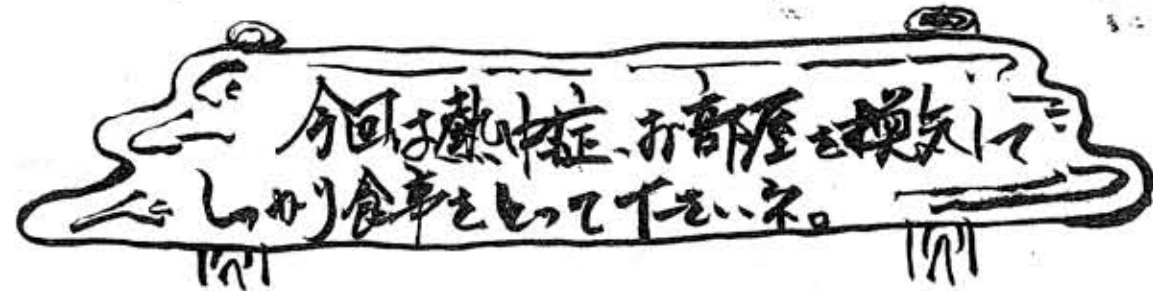 今回は熱中症、お部屋を換気して
しっかり食事をとって下さいネ。